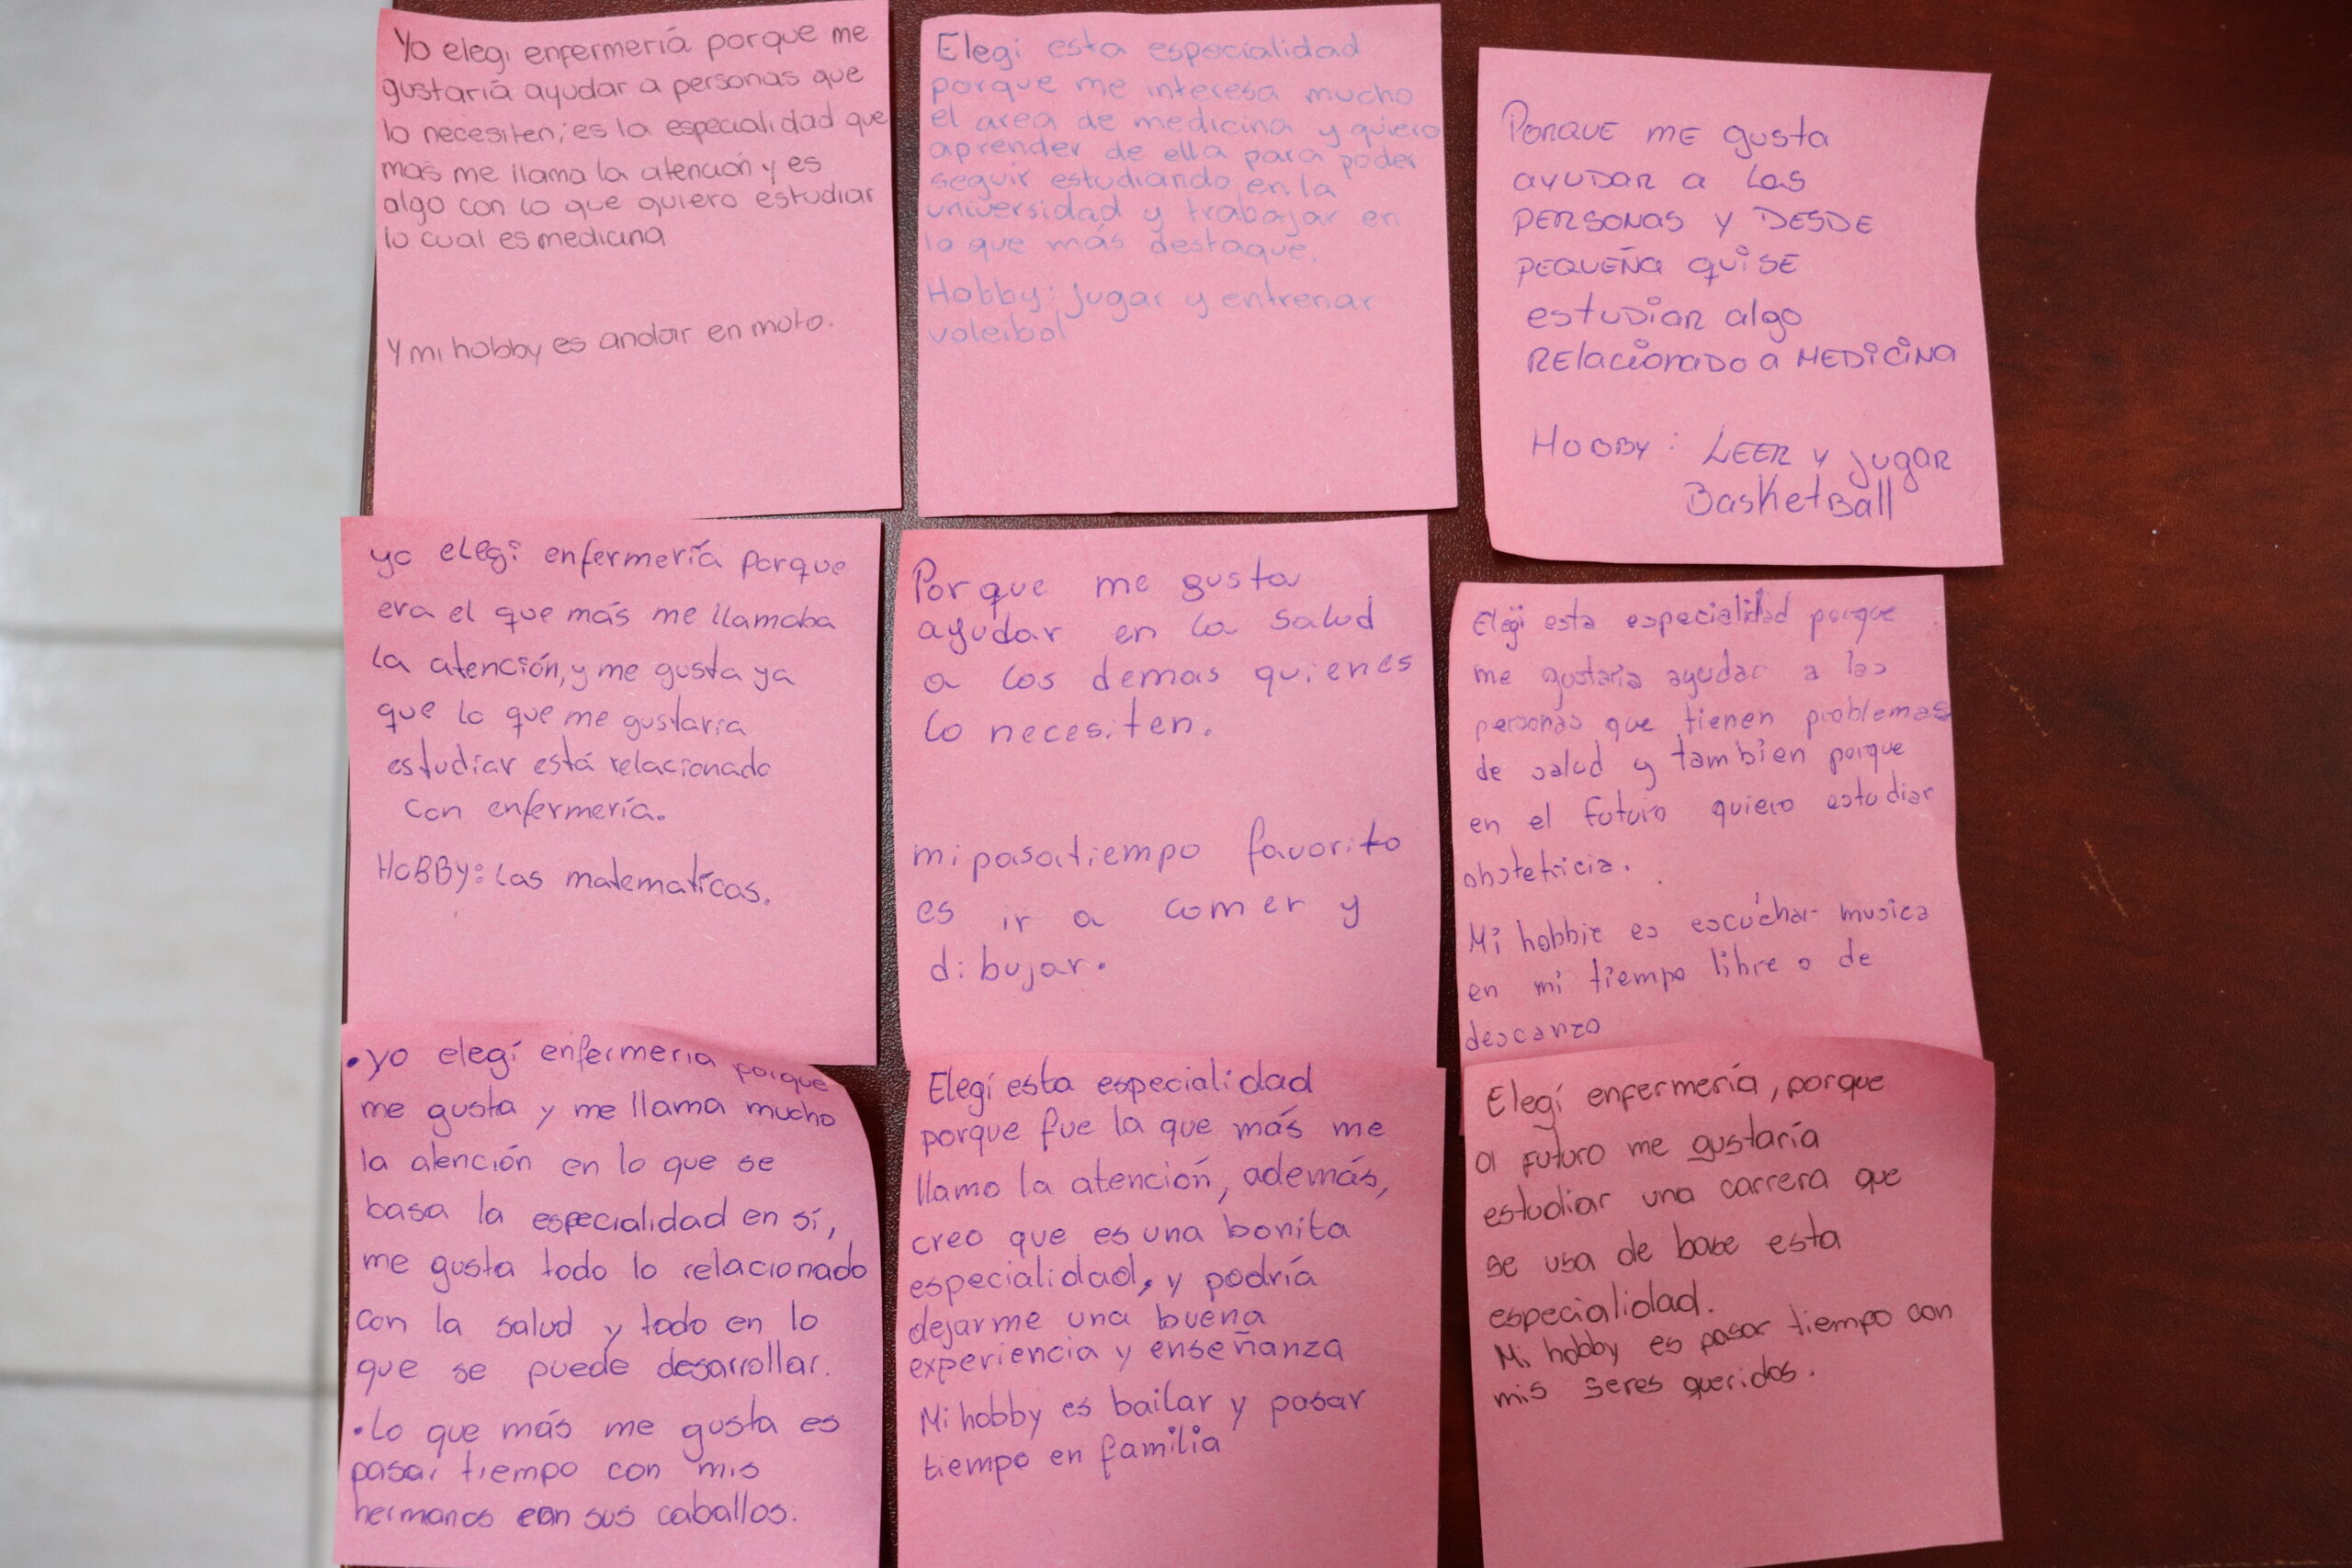 Yo elegi enfermería porque me
gustaría ayudar a personas que
lo necesiten, es la especialidad que
más me llama la atención y es
algo con lo que quiero estudiar
lo cual es medicina
Y mi hobby es andar en moto.
Elegi esta especialidad
porque me interesa mucho
el area de medicina y quiero
aprender de ella para poder
seguir estudiando en la
universidad y trabajar en
lo que más destaque.
Hobby: Jugar y entrenar
voleibol
PORQUE ME gusta
AYUDAR a LAS
PERSONAS Y DESDE
PEQUEÑA QUISE
ESTUDIAR algo
RELacionado a MEDICINA
HOBBY: LEER y jugar
BasketBall
yo elegi enfermería porque
era el que más me llamaba
la atención, y me gusta ya
que lo que me gustaría
estudiar está relacionado
con enfermería.
HOBBY: las matematícas.
Porque me gusta
ayudar en la salud
a los demas quienes
lo necesiten.
mi pasatiempo favorito
es ir a comer y
dibujar.
Elegi esta especialidad porque
me gustaria ayudar a las
personas que tienen problemas
de salud y tambien porque
en el futuro quiero estudiar
obstetricia.
Mi hobbie es escuchar musica
en mi tiempo libre o de
descanzo
•yo elegí enfermeria porque
me gusta y me llama mucho
la atención en lo que se
basa la especialidad en sí,
me gusta todo lo relacionado
con la salud y todo en lo
que se puede desarrollar.
•Lo que más me gusta es
pasar tiempo con mis
hermanos con sus caballos.
Elegí esta especialidad
porque fue la que más me
llamo la atención, además,
creo que es una bonita
especialidad, y podría
dejarme una buena
experiencia y enseñanza
Mi hobby es bailar y pasar
tiempo en familia
Elegí enfermería, porque
al futuro me gustaría
estudiar una carrera que
se usa de base esta
especialidad.
Mi hobby es pasar tiempo con
mis seres queridos.